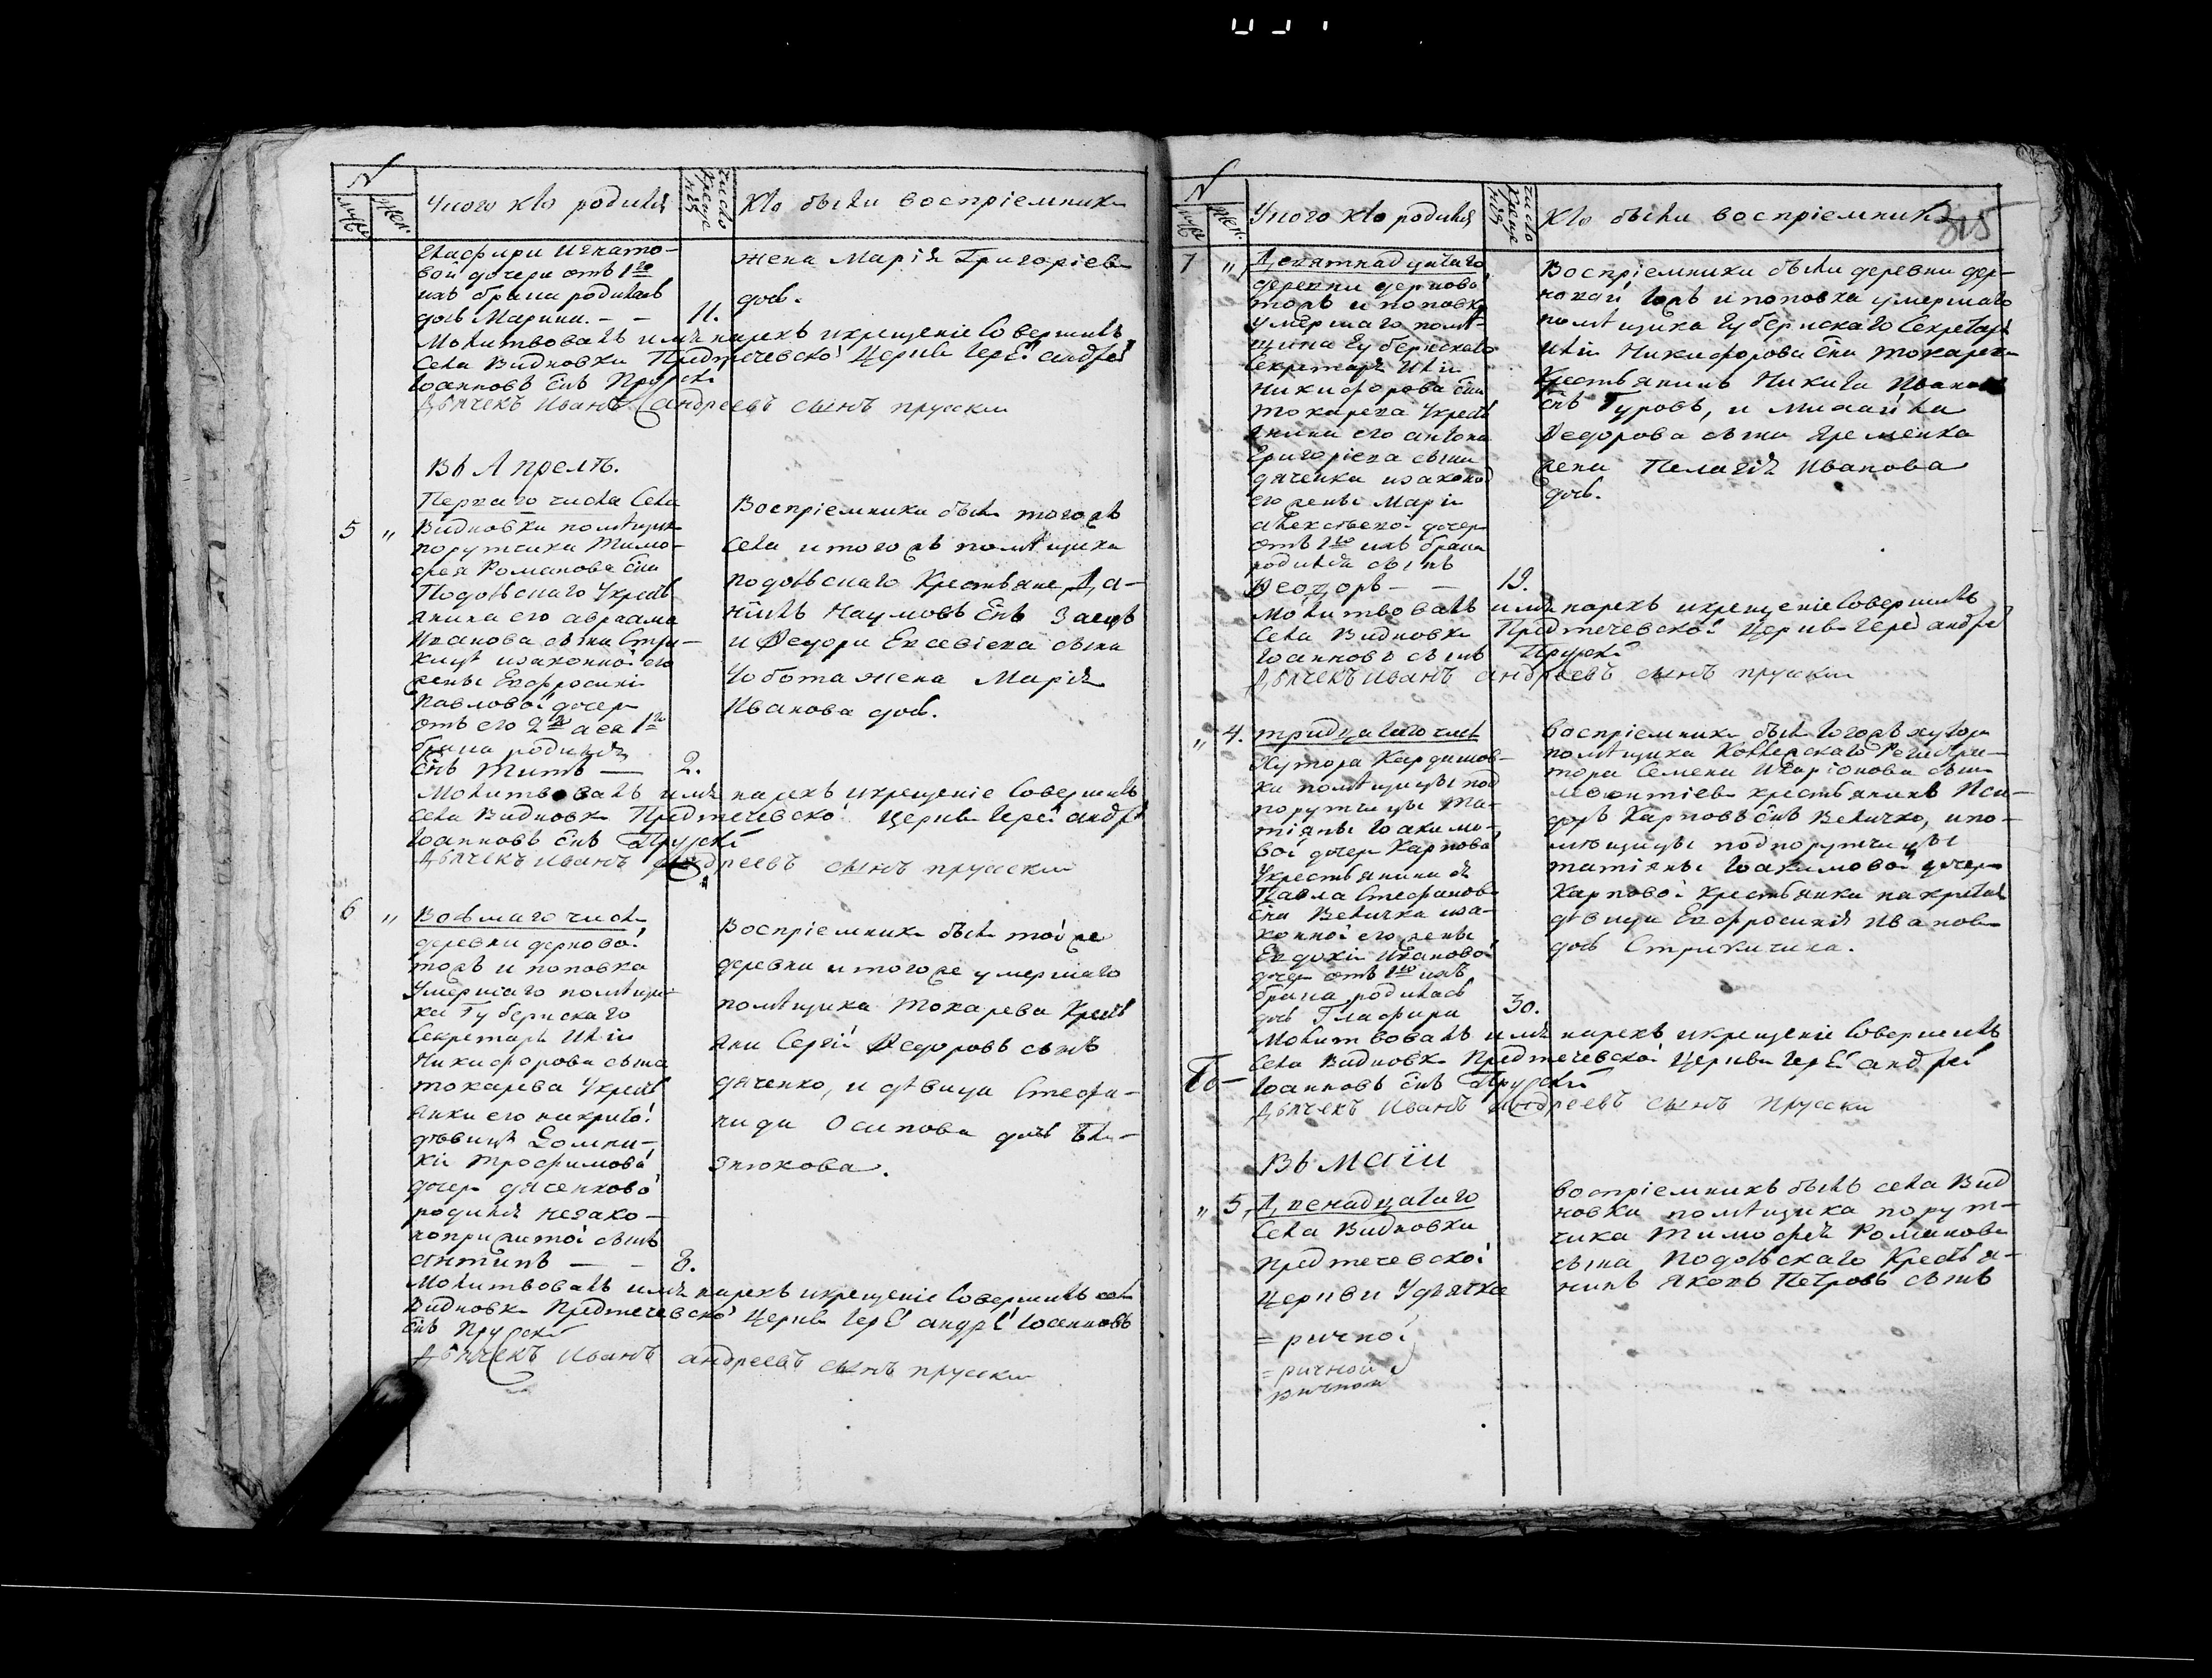 N
муж. жен.
У кого кто родился
число крещенія
Кто были воспріемники
Гликфири Игнато-
вой дочери отъ 1го
ихъ брака родилась
дочь Марина. — — 11.
жена Марія Григоріева
дочь.
Молитвовалъ имя нарекъ и крещеніе совершилъ
села Видновки Предтечевской церкви Іерей Андрей
Іоанновъ снъ Прускій
Дьячекъ Иванъ Андреевъ сынъ прускій
Въ Апрелѣ.
5 „
Перваго числа села
Видновки помѣщика
порутчика Тимо-
фея Романова сна
Подольскаго у крестья
янина его Авраама
Иванова сына Стри-
изаконной его
жены Евфросиніи
Павловой дочери
отъ его 2го а ея 1го
брака родился
снъ Титъ — 2.
Воспріемники были тогожъ
села и тогожъ помѣщика
подольскаго крестьяне Да-
ніилъ Наумовъ снъ Заецъ
и Федора Евсевіева сына
Чобота жена Марія
Иванова дочь.
Молитвовалъ имя нарекъ и крещеніе совершилъ
села Видновки Предтечевской церкви Іерей Андрей
Іоанновъ снъ Прускій
Дьячекъ Иванъ Андреевъ сынъ прускій
6 „
Восьмаго числа
деревни дерновой
торъ и поповка
умершаго помѣщи-
ка Губернскаго
Секретаря Иліи
Никифорова сына
токарева у крестья
янки его накритой
дѣвицы Домни-
кіи Трофимовой
дочери дяченковой
родился незако-
ноприжитой сынъ
Антипъ — — 8.
Воспріемники были той же
деревни и того же умершаго
помѣщика Токарева крестья
яни Сергій Федоровъ сынъ
дяченко, и дѣвица Стефа-
нида Осипова дочь
знюкова.
Молитвовалъ имя нарекъ и крещеніе совершилъ села
Видновки Предтечевской церкви Іерей Андрей Іоанновъ
снъ Прускій
Дьячекъ Иванъ Андреевъ сынъ прускій
N
муж. жен.
У кого кто родился
число крещенія
Кто были воспріемники
315
7 „
Девятнадцатаго
деревни дерновой
торъ и поповка
умершаго помѣ-
щика Губернскаго
Секретаря Иліи
Никифорова сна
токарева у крестья
янина его Антона
Григоріева сына
дяченка изаконной
его жены Маріи
Алексѣевой дочери
отъ 1го ихъ брака
родился сынъ
Феодоръ — — 19.
Воспріемники были деревни дер-
новой торъ и поповка умершаго
помѣщика Губернскаго Секретаря
Иліи Никифорова сна токарева
крестьянинъ Никита Иванов
снъ Гуровъ, и Михайла
Федорова сына Яременка
жена Пелагія Иванова
дочь.
Молитвовалъ имя нарекъ и крещеніе совершилъ
села Видновки Предтечевской церкви Іерей Андрей
Іоанновъ сынъ Прускій
Дьячекъ Иванъ Андреевъ сынъ прускій
„ 4.
тридцатаго числа
Хутора Кардашов-
ки помѣщицы под
порутчицы Та-
тіяны Іоакимо-
вой дочери Карповой
у крестьянина ея
Павла Стефанова
сна Величка иза-
конной его жены
Евдокіи Ивановой
дочери отъ 1го ихъ
брака родилась
дочь Гласфира 30.
воспріемники были тогожъ хутора
помѣщика Коллежскаго Регистра-
тора Семена Иларіонова сына
леонтіева крестьянинъ Иси-
доръ Карповъ снъ Величко, и по-
мѣщицы подпорутчицы
татіяны Іоакимовой дочери
Карповой крестьянки накритая
дѣвица Евфросинія Иванова
дочь Стрижичиха.
Молитвовалъ имя нарекъ и крещеніе совершилъ
села Видновки Предтечевской церкви Іерей Андрей
Іоанновъ снъ Прускій
Дьячекъ Иванъ Андреевъ сынъ прускій
Въ Маіи
„ 5.
Двенадцатаго
села Видновки
предтечевской
церкви У дьячка
= ричной
= ричной
ричной
воспріемникъ былъ села Вид
новки помѣщика порут-
чика Тимофея Романова
сына Подольскаго крестья-
нинъ Яковъ Петровъ сынъ